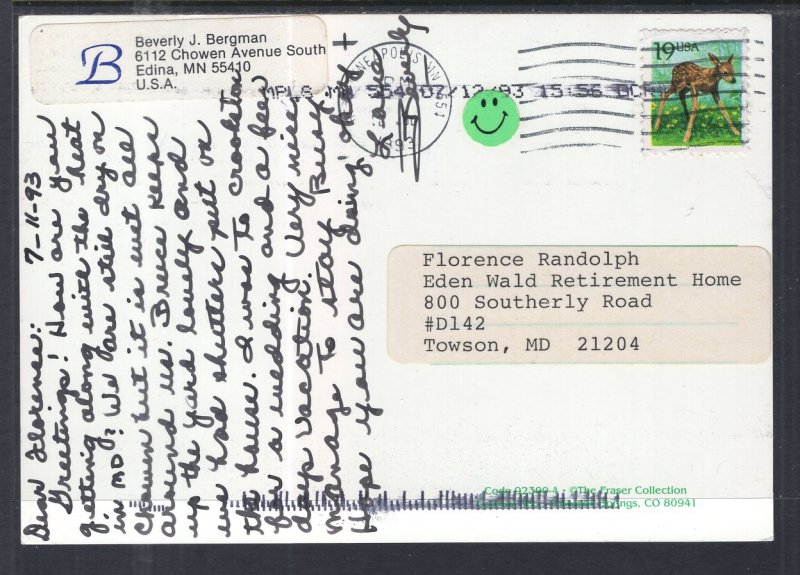 B
Beverly J. Bergman
6112 Chowen Avenue South
Edina, MN 55410
U.S.A.
MPLS MN 554 07/12/93 15:56
1993
19 USA
Florence Randolph
Eden Wald Retirement Home
800 Southerly Road
#D142
Towson, MD 21204
7-11-93
Dear Florence:
Greetings! How are you
getting along with the heat
in MD? We are still dry on
Chowen but it is wet all
around us. Bruce keeps
up the yard lovely and
we had shutters put on
the house. I was to Crookston
for a wedding and a few
days vacation. Very nice.
Manage to stay busy.
Hope you are doing okay +
Love, Beverly
Code 02300-4 · ©The Fraser Collection
Springs, CO 80941